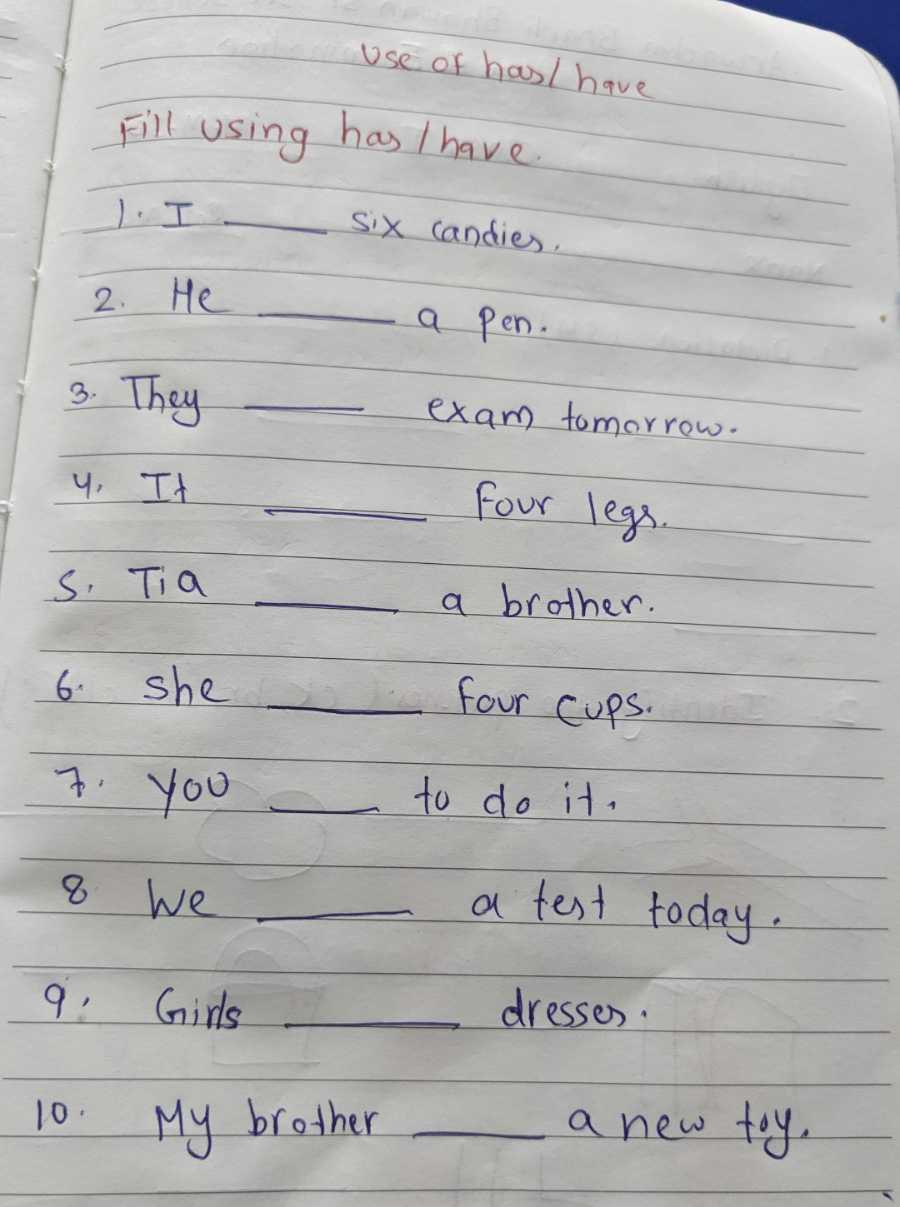 Use of has/have
Fill using has/have.
1. I ____ six candies.
2. He ____ a pen.
3. They ____ exam tomorrow.
4. It ____ four legs.
5. Tia ____ a brother.
6. she ____ four cups.
7. you ____ to do it.
8 We ____ a test today.
9. Girls ____ dresses.
10. My brother ____ a new toy.